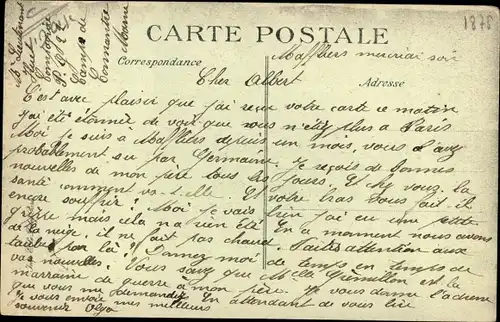 1878
CARTE POSTALE
Correspondance
Adresse
Maffliers mercredi soir
Mr Lieutenant
Camp de
Mamie
Cher Albert
C'est avec plaisir que j'ai reçu votre carte ce matin
J'ai été étonnée de voir que vous n'étiez plus à Paris
Moi je suis à Maffliers depuis un mois, vous l'avez
probablement su par Germaine. Je reçois de bonnes
nouvelles de mon père tous les jours. Et chez vous la
santé comment va-t-elle. Et votre bras vous fait-il
encore souffrir? Moi je vais bien j'ai eu une petite
grippe mais cela n'a rien été En ce moment nous avons
de la neige, il ne fait pas chaud. Faites attention aux
par là! Donnez moi de temps en temps de
vos nouvelles. Vous savez que Melle Grémillon est la
marraine de guerre à mon père. Je vous donne l'adresse
que vous me demandez En attendant de vous lire
Je vous envoie mes meilleurs
souvenirs Olga